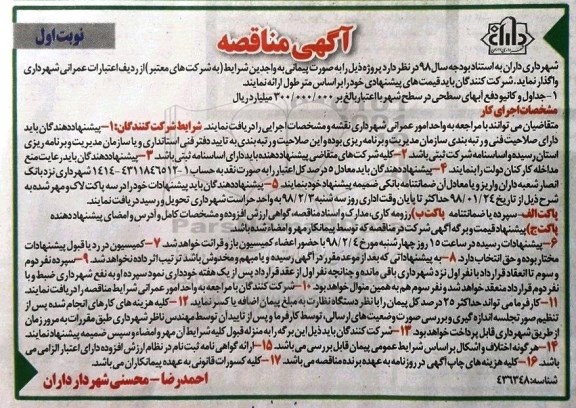 آگهی مناقصه
نوبت اول
شهرداری داران به استناد بودجه سال ۹۸ در نظر دارد پروژه ذیل را به صورت پیمانی به واجدین شرایط (به شرکت های معتبر) از ردیف اعتبارات عمرانی شهرداری
واگذار نماید. شرکت کنندگان باید قیمت های پیشنهادی خود را بر اساس متر طول ارائه نمایند.
۱- جداول و کانیو دفع آبهای سطحی در سطح شهر با اعتبار بالغ بر ۳۰۰/۰۰۰/۰۰۰ میلیارد ریال
مشخصات اجرای کار
متقاضیان می توانند با مراجعه به واحد امور عمرانی شهرداری نقشه و مشخصات اجرایی را دریافت نمایند. شرایط شرکت کنندگان: ۱- پیشنهاددهندگان باید
دارای صلاحیت فنی و رتبه بندی سازمان مدیریت و برنامه ریزی بوده و این صلاحیت و رتبه بندی به تایید دفتر فنی استانداری و یا سازمان مدیریت و برنامه ریزی
استان رسیده و اساسنامه شرکت ثبتی باشد. ۲- کلیه شرکت های متقاضی پیشنهاددهنده باید دارای اساسنامه ثبتی باشد. ۳- پیشنهاددهندگان باید رعایت منع
مداخله کارکنان دولت را بنمایند. ۴- پیشنهاددهندگان باید معادل ۵ درصد کل اعتبار را به صورت نقد به حساب ۱-۴۳۱۱۸۴۶۵۱۲-۱۴۱۴ شهرداری نزد بانک
انصار شعبه داران واریز و یا معادل آن ضمانتنامه بانکی ضمیمه پیشنهاد خود بنمایند. ۵- پیشنهاددهندگان باید پیشنهادات خود را در سه پاکت لاک و مهر شده به
شرح ذیل از تاریخ ۹۸/۰۱/۲۴ حداکثر تا پایان وقت اداری روز سه شنبه ۹۸/۲/۳ به واحد حراست شهرداری تحویل و رسید دریافت نمایند.
پاکت الف- سپرده یا ضمانتنامه پاکت ب) رزومه کاری، مدارک و اسناد مناقصه، گواهی ارزش افزوده و مشخصات کامل و آدرس و امضای پیشنهاددهنده
پاکت ج) پیشنهاد قیمت و برگه آگهی شرکت در مناقصه که توسط پیمانکار مهر و امضاء شده باشد
۶- پیشنهادات رسیده در ساعت ۱۵ روز چهارشنبه مورخ ۹۸/۲/۴ با حضور اعضاء کمیسیون باز و قرائت خواهد شد. ۷- کمیسیون در رد یا قبول پیشنهادات
مختار بوده و حق انتخاب دارد. ۸- به پیشنهاداتی که بعد از موعد مقرر در آگهی رسیده و یا مبهم و مخدوش باشد ترتیب اثر داده نخواهد شد. ۹- سپرده نفر دوم
و سوم تا انعقاد قرارداد با نفر اول نزد شهرداری باقی مانده و چنانچه نفر اول از عقد قرارداد پس از یک هفته خودداری نمود سپرده او به نفع شهرداری ضبط و با
نفر دوم قرارداد منعقد خواهد شد و نفر سوم هم به همین منوال خواهد بود. ۱۰- شرکت کنندگان با مراجعه به واحد امور عمرانی شرایط مناقصه را دریافت نمایند.
۱۱- کارفرما می تواند حداکثر ۲۵ درصد کل پیمان را با نظر دستگاه نظارت به مبلغ پیمان اضافه یا کسر نماید. ۱۲- کلیه هزینه های کارهای انجام شده پس از
تنظیم صورتجلسه اندازه گیری و بررسی صورت وضعیت های ارسالی، توسط کارفرما و پس از تایید آن توسط مهندس ناظر شهرداری طبق مقررات به مرور زمان
از طریق شهرداری قابل پرداخت خواهد بود. ۱۳- شرکت کنندگان باید ذیل این برگه را به منزله قبول کلیه شرایط آن مهر و امضاء و سپس ضمیمه پیشنهاد نمایند
۱۴- هرگونه اختلاف و اشکال بر اساس شرایط عمومی پیمان قابل بررسی می باشد. ۱۵- ارائه گواهی نامه ثبت نام در نظام ارزش افزوده دارای اعتبار الزامی می
باشد. ۱۶- کلیه هزینه های چاپ آگهی در روزنامه به عهده برنده مناقصه می باشد. ۱۷- کلیه کسورات قانونی به عهده پیمانکاران می باشد.
شناسه: ۴۳۶۳۴۸
احمدرضا - محسنی شهردار داران